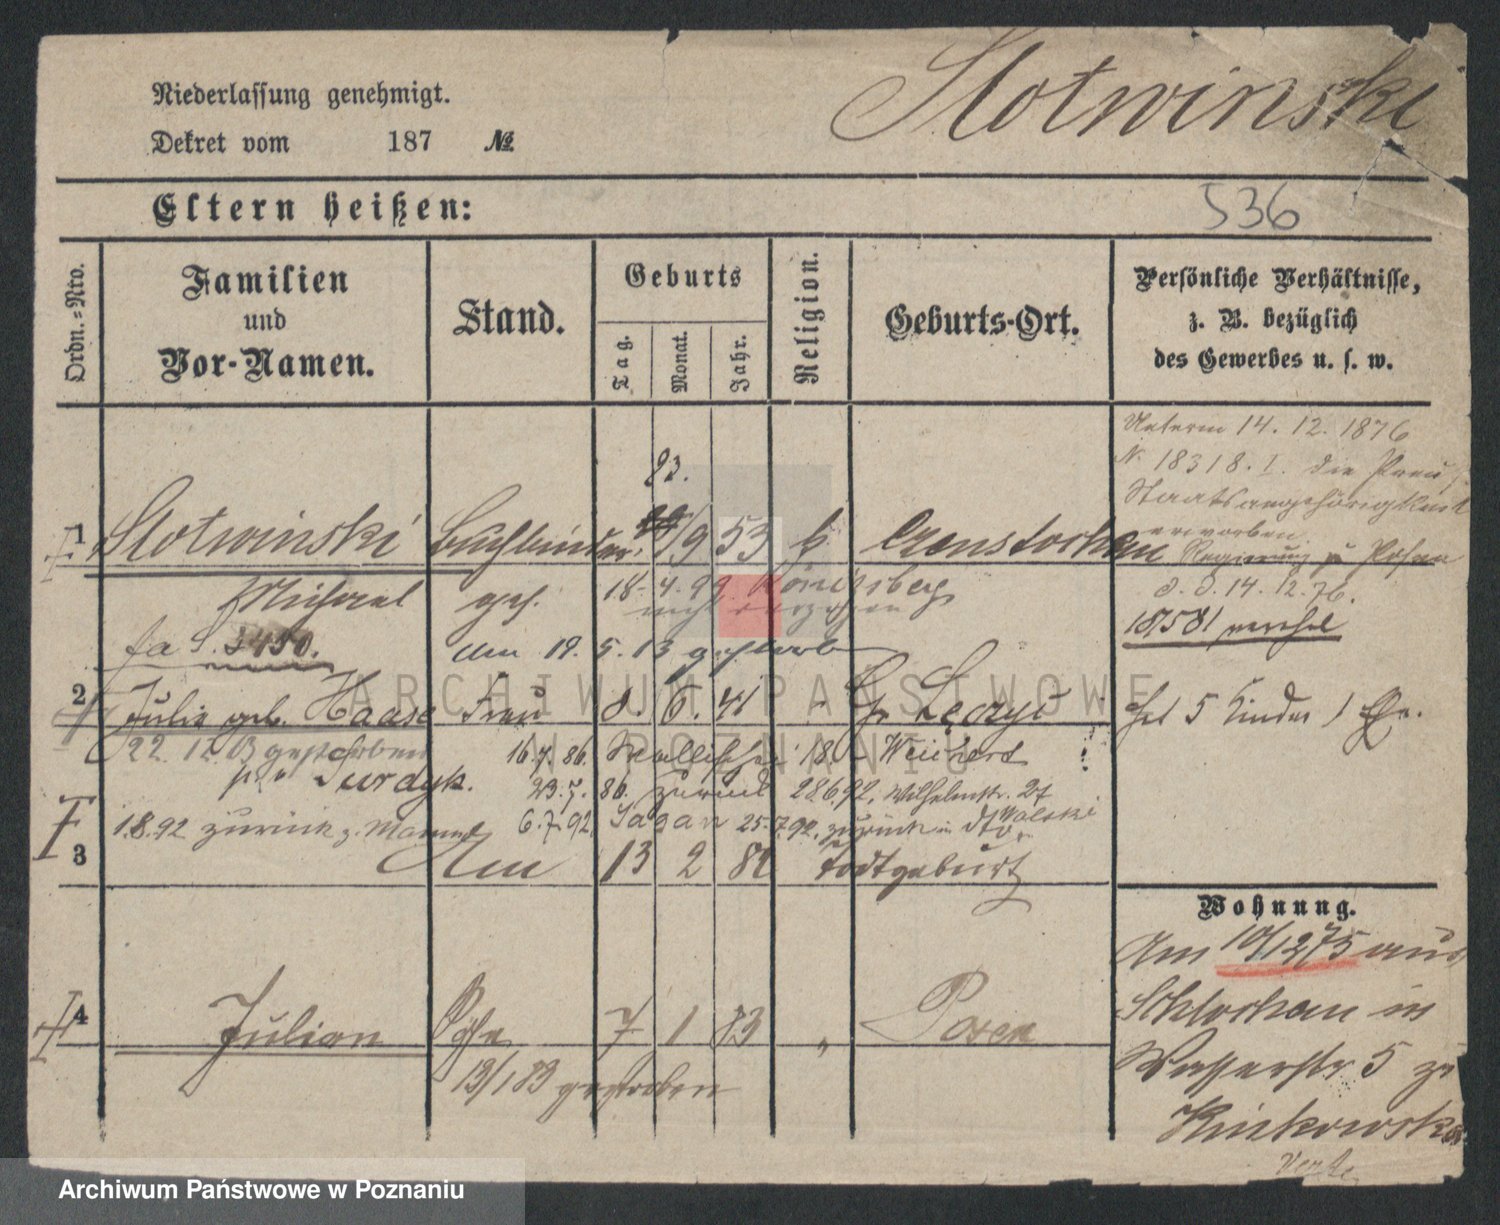 Niederlassung genehmigt.
Slotwinski
Dekret vom 187 №
Eltern heißen:
536
Ordn.=Nro.
Familien
und
Vor-Namen.
Stand.
Geburts
Tag.
Monat.
Jahr.
Religion.
Geburts-Ort.
Persönliche Verhältnisse,
z. B. bezüglich
des Gewerbes u. s. w.
Unterm 14. 12. 1876
N. 18318. I. die Preuß
Staatsangehörigkeit
erworben
Regierung zu Posen
d. d. 14. 12. 76.
18/581
23.
1 Slotwinski Buchbinder 9 53 k. Czenstochau
Michael
18. 4. 99 Königsberg
nicht verzogen
fa S. 3450.
am 19. 5. 13 gestorben
2 Julie geb. Haase Frau 8. 6. 41 Leczyi
hat 5 Kinder
22. 12. 03 gestorben
16.7.86.
Jurdyk.
23.7. 86. zurück 28.6.92. Wilhelmstr. 27
1.8.92 zurück z. Mann
6.7.92 Sagan 25.7.92. zurück
3 Am 13 2 81 todtgeburt
Wohnung.
Am 10/12 75 aus
Schlochau in
Wasserstr 5 zu
4 Julian Sohn 7 1 83 " Posen
13/1 83 gestorben
ARCHIWUM PAŃSTWOWE
W POZNANIU
Archiwum Państwowe w Poznaniu